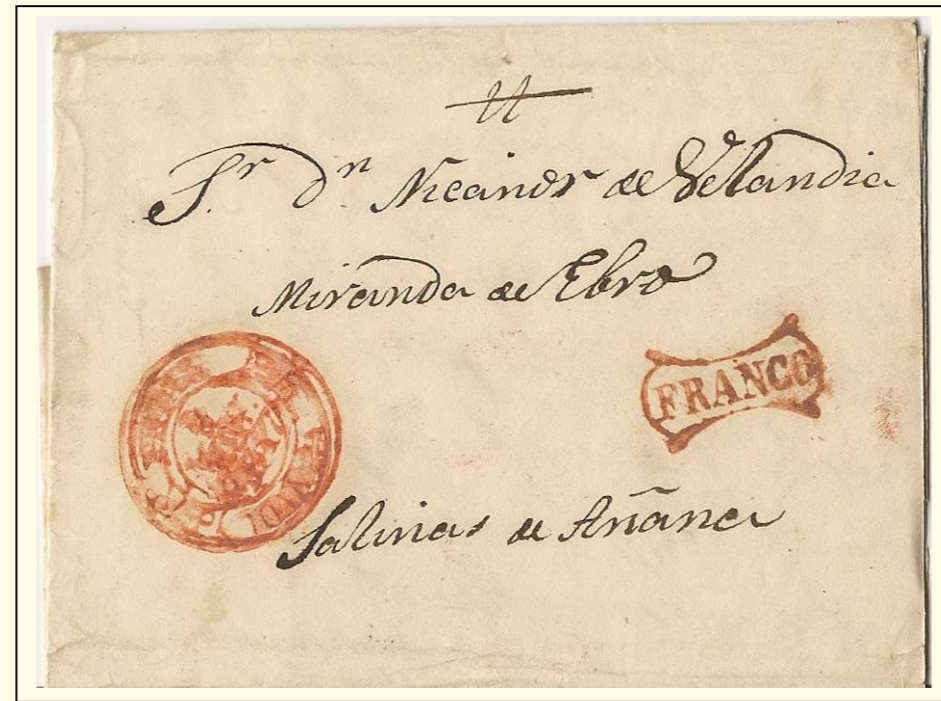 Sr. Dn. Nicanor de Velandia
Miranda de Ebro
FRANCO
Salinas de Añana